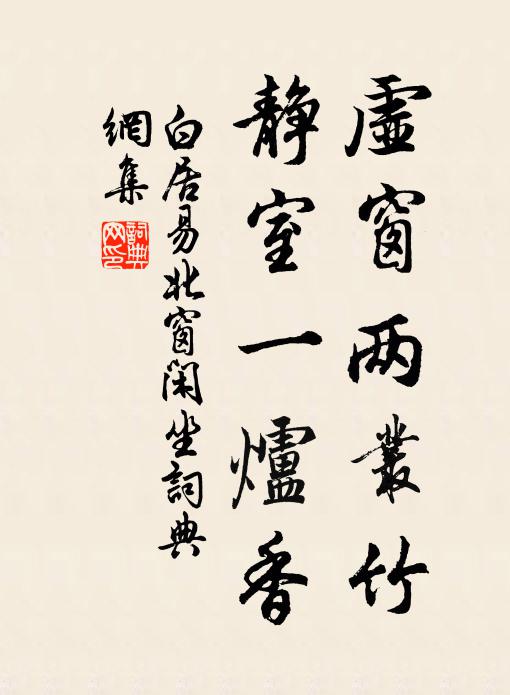 虛窗两叢竹
静室一爐香
白居易北窗閑坐詞典
網集
詞典网印